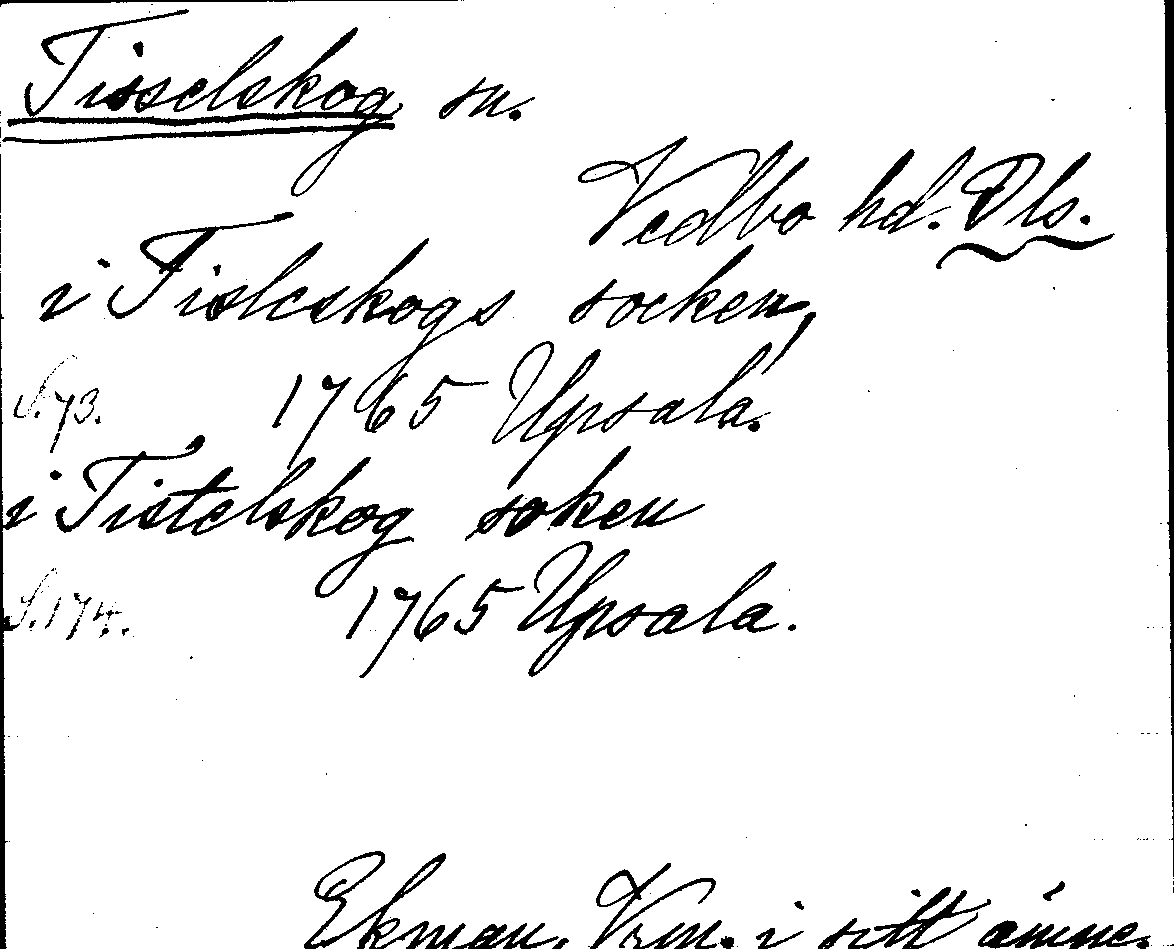 Tisselskog sn.
Vedbo hd. Dls.
i Tisleskogs socken,
S. 73. 1765 Upsala.
i Tistelskog soken
S. 174. 1765 Upsala.
Ekman, Vrm. i sitt ämne